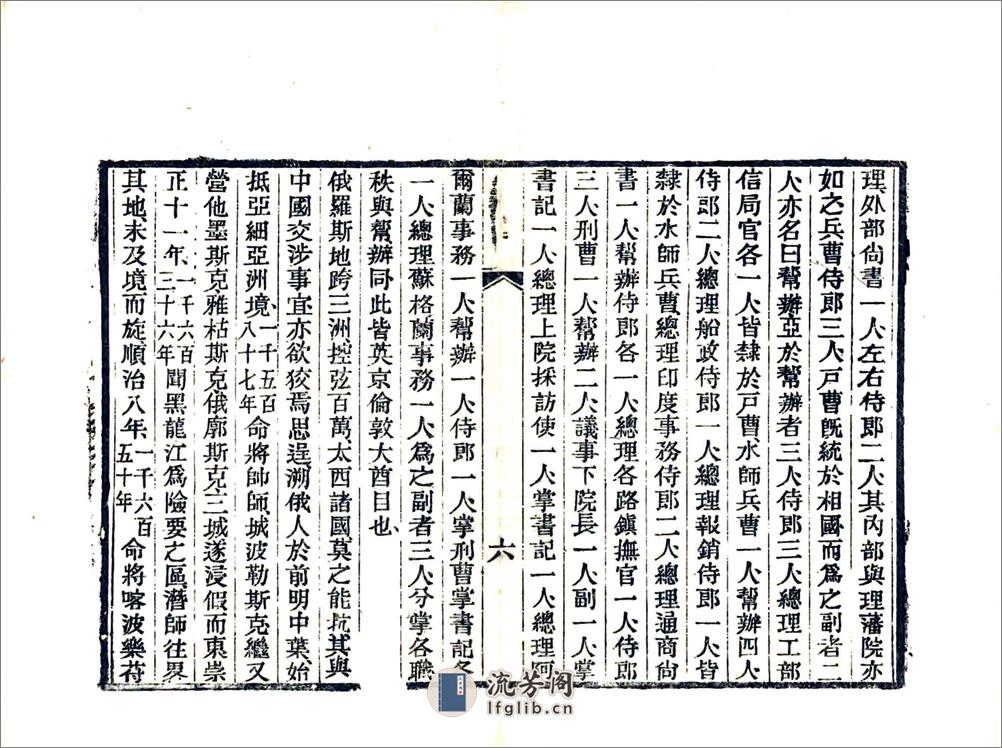 理外部尙書一人左右侍郎二人其內部與理藩院亦
如之兵曹侍郎三人戸曹旣統於相國而爲之副者二
人亦名曰幫辦亞於幫辦者三人侍郎三人總理工部
信局官各一人皆隸於戸曹水師兵曹一人幫辦四人
侍郎二人總理船政侍郎一人總理報銷侍郎一人皆
隸於水師兵曹總理印度事務侍郎二人總理通商尙
書一人幫辦侍郎各一人總理各路鎭撫官一人侍郎
三人刑曹一人幫辦二人議事下院長一人副一人掌
書記一人總理上院採訪使一人掌書記一人總理阿
六
爾蘭事務一人幫辦一人侍郎一人掌刑曹掌書記各
一人總理蘇格蘭事務一人爲之副者三人分掌各職
秩與幫辦同此皆英京倫敦大酋目也
俄羅斯地跨三洲控弦百萬太西諸國莫之能抗其與
中國交涉事宜亦欲狡焉思逞溯俄人於前明中葉始
抵亞細亞洲境一千五百八十七年命將帥師城波勒斯克繼又
營他墨斯克雅枯斯克俄廓斯克三城遂浸假而東崇
正十一年一千六百三十六年聞黑龍江爲險要之區潛師往畧
其地未及境而旋順治八年一千六百五十年命將喀波樂苻
流芳阁
lfglib.cn